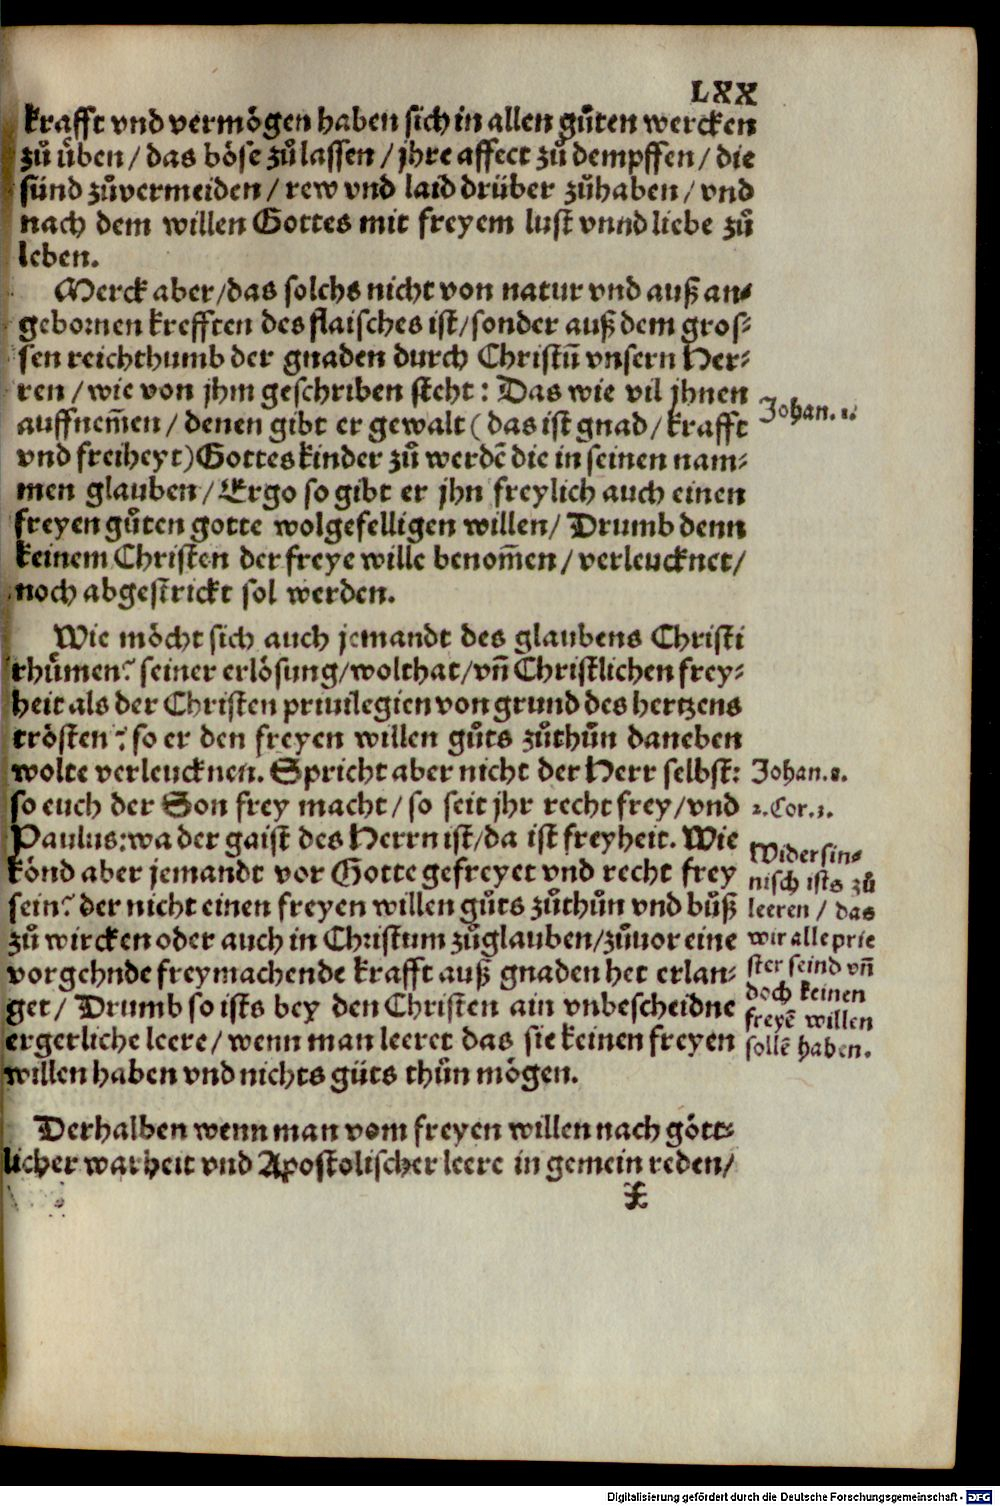 LXX
krafft vnd vermögen haben sich in allen gůten wercken
zů üben / das böse zůlassen / jhre affect zů dempffen / die
sünd zůvermeiden / rew vnd laid drüber zůhaben / vnd
nach dem willen Gottes mit freyem lust vnnd liebe zů
leben.
Merck aber / das solchs nicht von natur vnd auß an⸗
gebornen krefften des flaisches ist / sonder auß dem gros⸗
sen reichthumb der gnaden durch Christū vnsern Her⸗
ren / wie von jhm geschriben steht : Das wie vil jhnen
auffnem̃en / denen gibt er gewalt ( das ist gnad / krafft
vnd freiheyt) Gottes kinder zů werdē die in seinen nam⸗
men glauben / Ergo so gibt er jhn freylich auch einen
freyen gůten gotte wolgefelligen willen / Drumb denn
keinem Christen der freye wille benom̃en / verleucknet /
noch abgestrickt sol werden.
Johan. 1.
Wie möcht sich auch jemandt des glaubens Christi
rhůmen? seiner erlösung / wolthat / vñ Christlichen frey⸗
heit als der Christen priuilegien von grund des hertzens
trösten? so er den freyen willen gůts zůthůn daneben
wolte verleucknen. Spricht aber nicht der Herr selbst:
so euch der Son frey macht / so seit jhr recht frey / vnd
Paulus: wa der gaist des Herrn ist / da ist freyheit. Wie
könd aber jemandt vor Gotte gefreyet vnd recht frey
sein? der nicht einen freyen willen gůts zůthůn vnd bůß
zů wircken oder auch in Christum zůglauben / zůuor eine
vorgehnde freymachende krafft auß gnaden het erlan⸗
get / Drumb so ists bey den Christen ain vnbescheidne
ergerliche leere / wenn man leeret das sie keinen freyen
willen haben vnd nichts gůts thůn mögen.
Johan. 8.
2. Cor. 3.
Widersin⸗
nisch ists zů
leeren / das
wir alle prie
ster seind vñ
doch keinen
freyē willen
sollē haben.
Derhalben wenn man vom freyen willen nach gött⸗
licher warheit vnd Apostolischer leere in gemein reden /
Digitalisierung gefördert durch die Deutsche Forschungsgemeinschaft - DFG